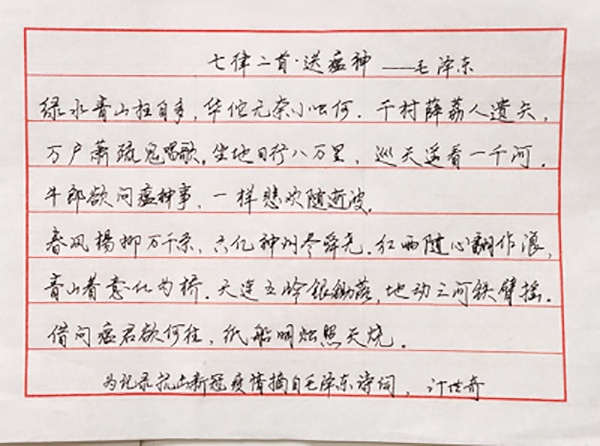 七律二首·送瘟神 ——毛泽东
绿水青山枉自多,华佗无奈小虫何.千村薜荔人遗矢,
万户萧疏鬼唱歌.坐地日行八万里,巡天遥看一千河.
牛郎欲问瘟神事,一样悲欢随逝波.
春风楊柳万千条,六亿神州尽舜尧.红雨随心翻作浪,
青山着意化为桥.天连五岭银锄落,地动三河铁臂摇.
借问瘟君欲何往,纸船明烛照天烧.
为记录抗击新冠疫情摘自毛泽东诗词,